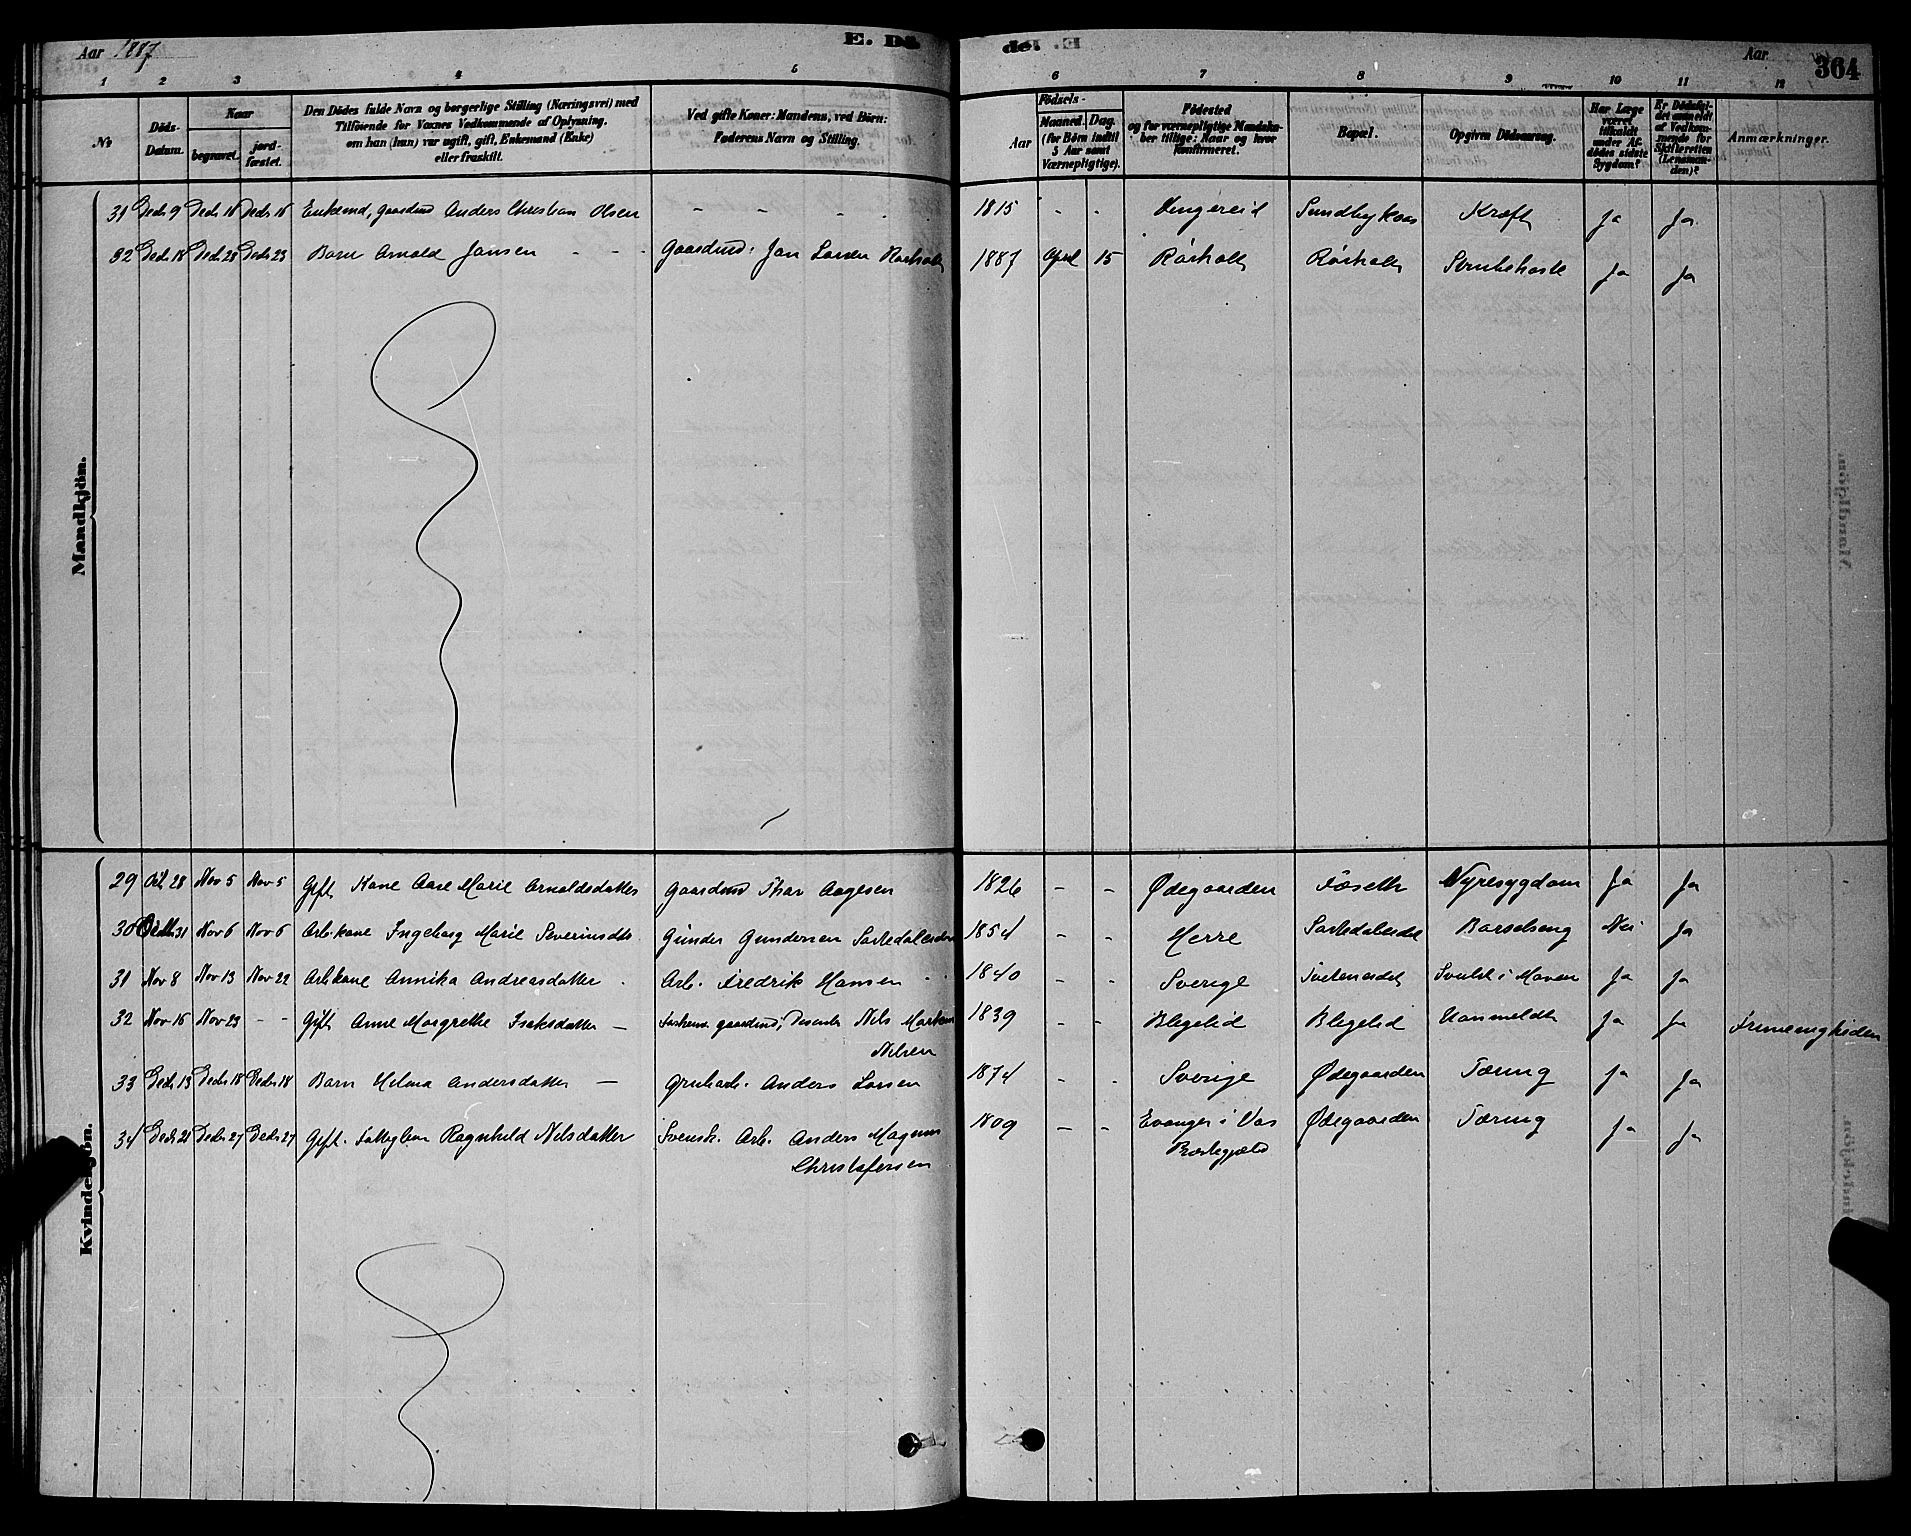 Aar 1887
E. Dö
de. E
Aar
364
1 2 3 4 5 6 7 8 9 10 11 12
No
Döds-Datum.
Naar
begravet.
jord-fæstet.
Den Dödes fulde Navn og borgerlige Stilling (Næringsvei) med
Tilföiende for Voxnes Vedkommende af Oplysning,
om han (hun) var ugift, gift, Enkemand (Enke)
eller fraskilt.
Ved gifte Koner: Mandens, ved Börn:
Faderens Navn og Stilling.
Aar
Födsels-
Maaned. Dag.
(for Börn indtil
5 Aar samt
Værnepligtige).
Födested
og for værnepligtige Mandskaber tillige: Naar og hvor
Konfirmeret.
Bopæl.
Opgiven Dödsaarsag.
Har Læge
været
tilkaldt
under Afdödes sidste
Sygdom?
Er Dödsfaldet anmeldt
af Vedkommende for
Skifteretten
(Lensmanden)?
Anmærkninger.
Mandkjön.
31 Decb 9 Decb 16 Decb 16 Enkemd, gaardmd Anders Christian Olsen - - - - 1815 - - Sundbykaas Kræft Ja Ja
32 Decb 18 Decb 23 Decb 23 Barn Arnold Jansen - - - Gaardmd: Jan Larsen Rørholt 1887 April 15 Rørholt Rørholt Strubehoste Ja Ja
Kvindekjön.
29 Oct 28 Nov 5 Nov 5 Gift Kone Aase Marie Arnoldsdatter Gaardmd Thor Aagesen 1826 - - Ødegaarden Foseth Nyresygdom Ja Ja
30 Octb 31 Nov 6 Nov 6 Arb.kone Ingeborg Marie Severinsdtr. Gunder Gundersen 1854 - - Herre Barselseng Nei Ja
31 Nov 8 Nov 13 Nov 22 Arbkone Annika Andreasdatter Arb. Fredrik Hansen - - 1840 - - Sverige Svulst i Maven Ja Ja
32 Nov 16 Nov 23 - - Gift Anne Margrethe Isaksdatter - gaardmd, Dissenter Nils
Nilsen 1839 - - Blegelid Blegelid Uanmeldt Ja Ja Frimenigheden
33 Decb 13 Decb 18 Decb 18 Barn Helma Andersdatter - Grubearb. Anders Larsen 1874 - - Sverige Ødegaarden Tæring Ja Ja
34 Decb 21 Decb 27 Decb 27 Gift. Ragnhild Nilsdatter Svensk. Arb. Anders Magnus
Christofersen 1809 - - Evanger i Vos
Præstegjæld Ødegaarden Tæring Ja Ja